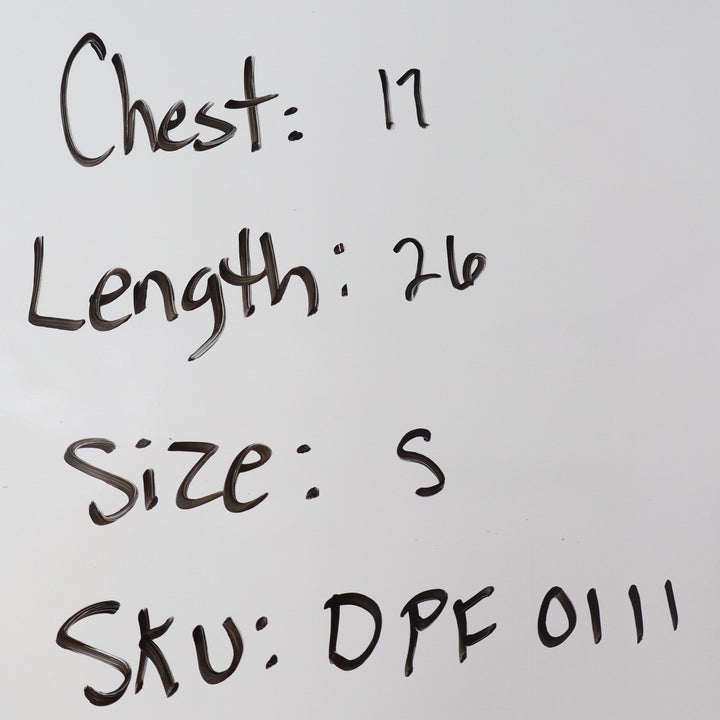 Chest: 17
Length: 26
Size: S
SKU: DPF 0111